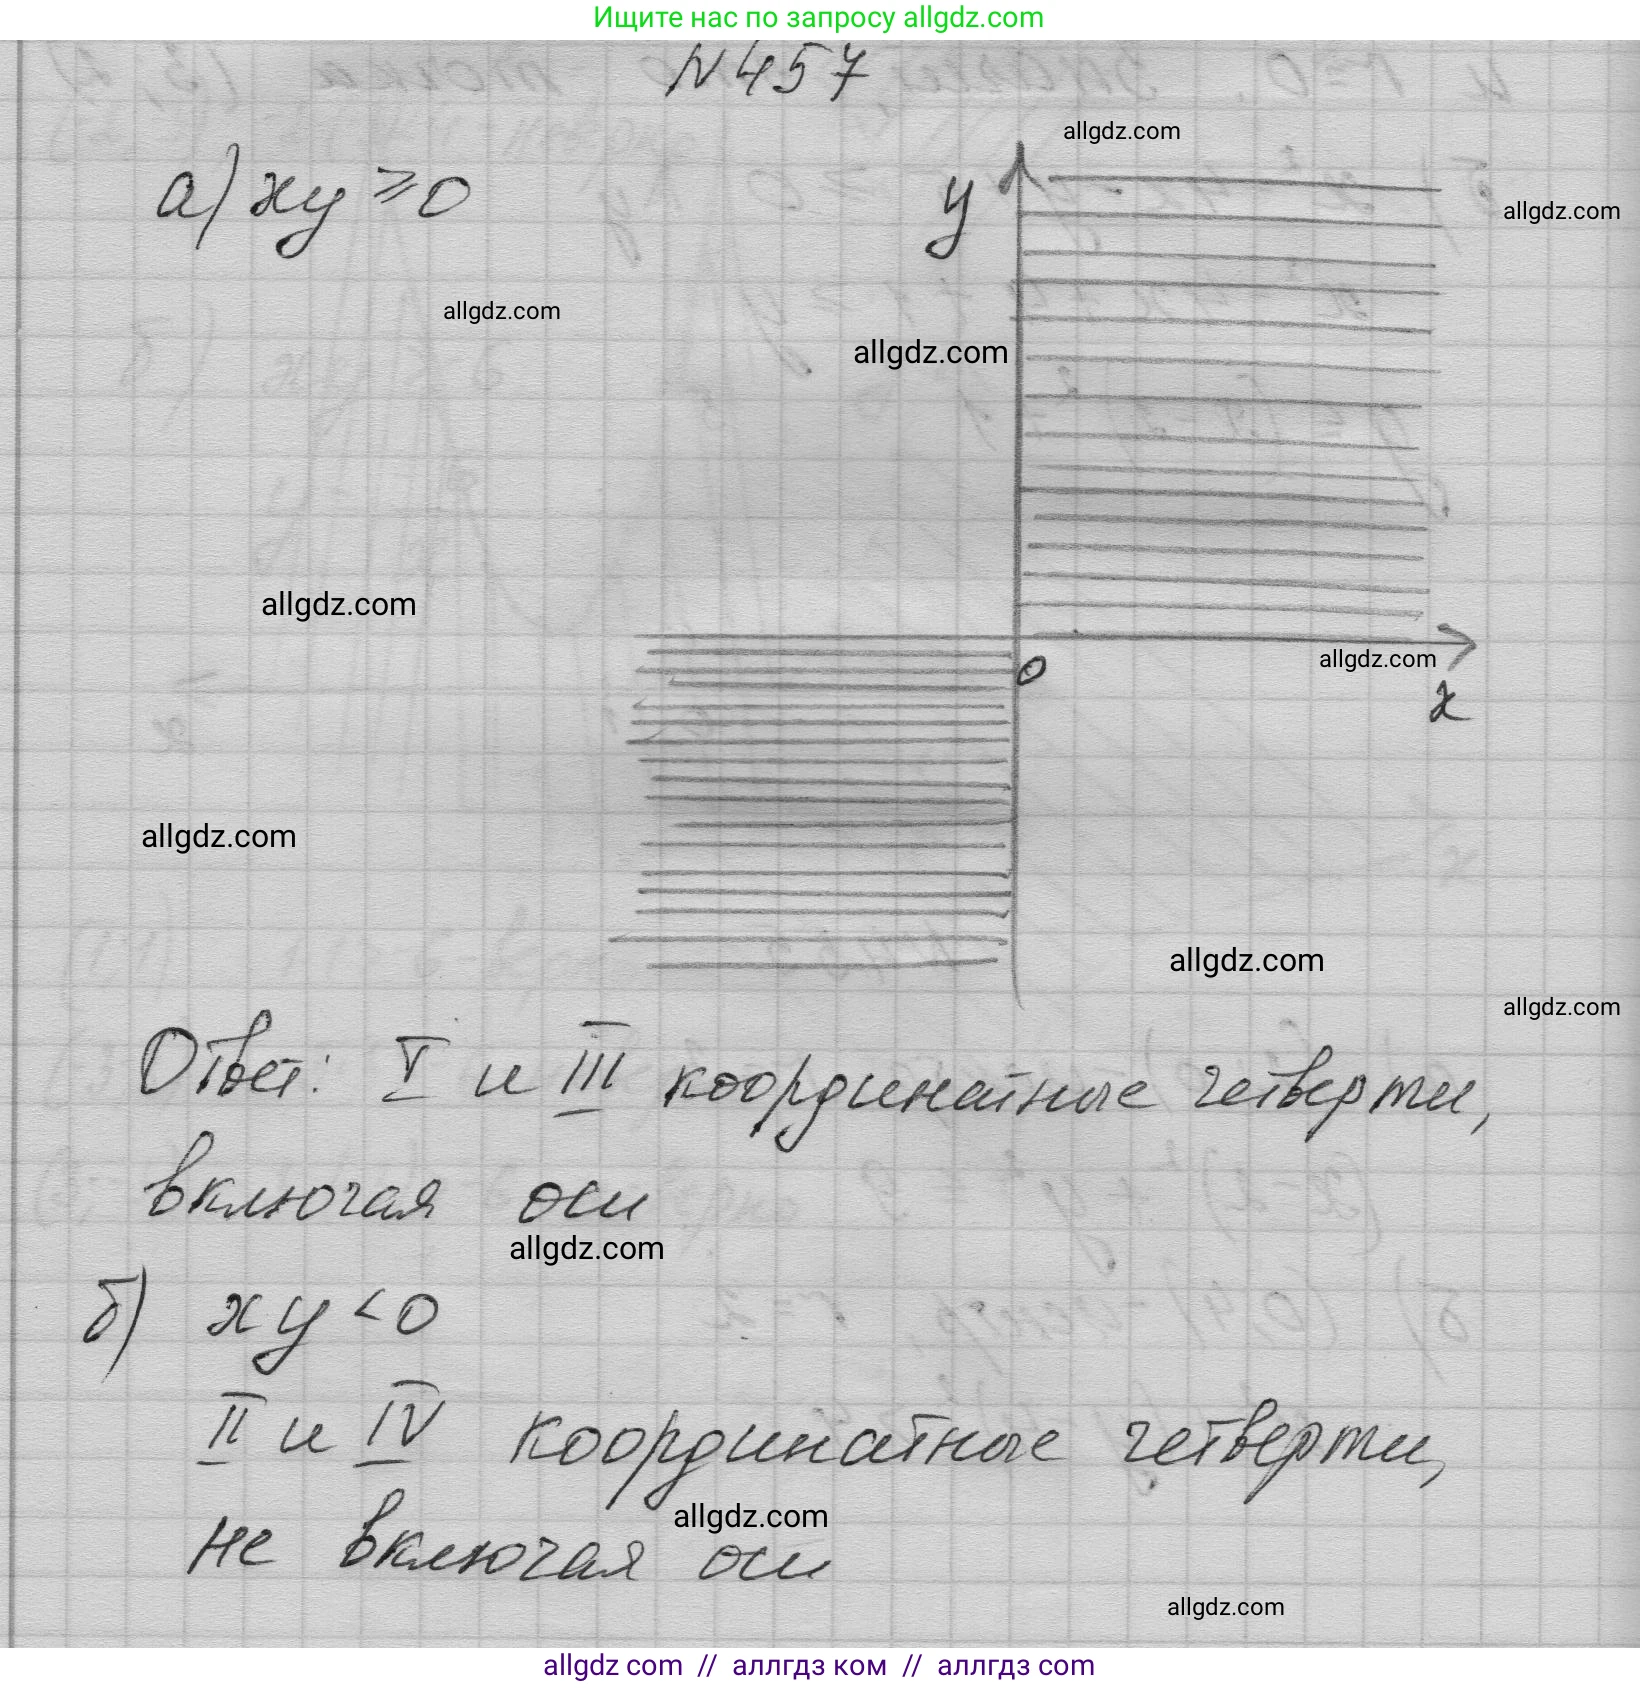 Ищите нас по запросу allgdz.com
N457
allgdz.com
а) xy ⩾ 0
y
allgdz.com
allgdz.com
allgdz.com
allgdz.com
0
allgdz.com
x
allgdz.com
allgdz.com
allgdz.com
Ответ: I и III координатные четверти,
включая оси
allgdz.com
б) xy < 0
II и IV координатные четверти,
allgdz.com
не включая оси
allgdz.com
allgdz com // аллгдз ком // аллгдз com